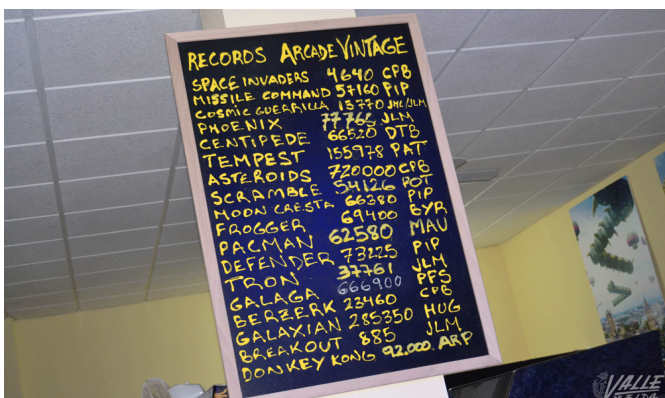 RECORDS ARCADE VINTAGE
SPACE INVADERS 4640 CPB
MISSILE COMMAND 57160 PIP
COSMIC GUERRILLA 13770 JMC/JLM
PHOENIX 77765 JLM
CENTIPEDE 66520 DTB
TEMPEST 155978 PAT
ASTEROIDS 720000 CPB
SCRAMBLE 54126 POT
MOON CRESTA 66380 PIP
FROGGER 69400 GYR
PACMAN 62580 MAU
DEFENDER 73225 PIP
TRON 37761 JLM
GALAGA 666900 PFS
BERZERK 23460 CPB
GALAXIAN 285350 HUG
BREAKOUT 885 JLM
DONKEY KONG 92.000. ARP
VALLE